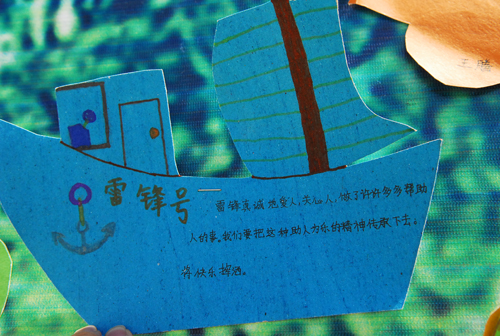 雷锋号
雷锋真诚地爱人,关心人,做了许许多多帮助
人的事。我们要把这种助人为乐的精神传承下去。
将快乐挥洒。